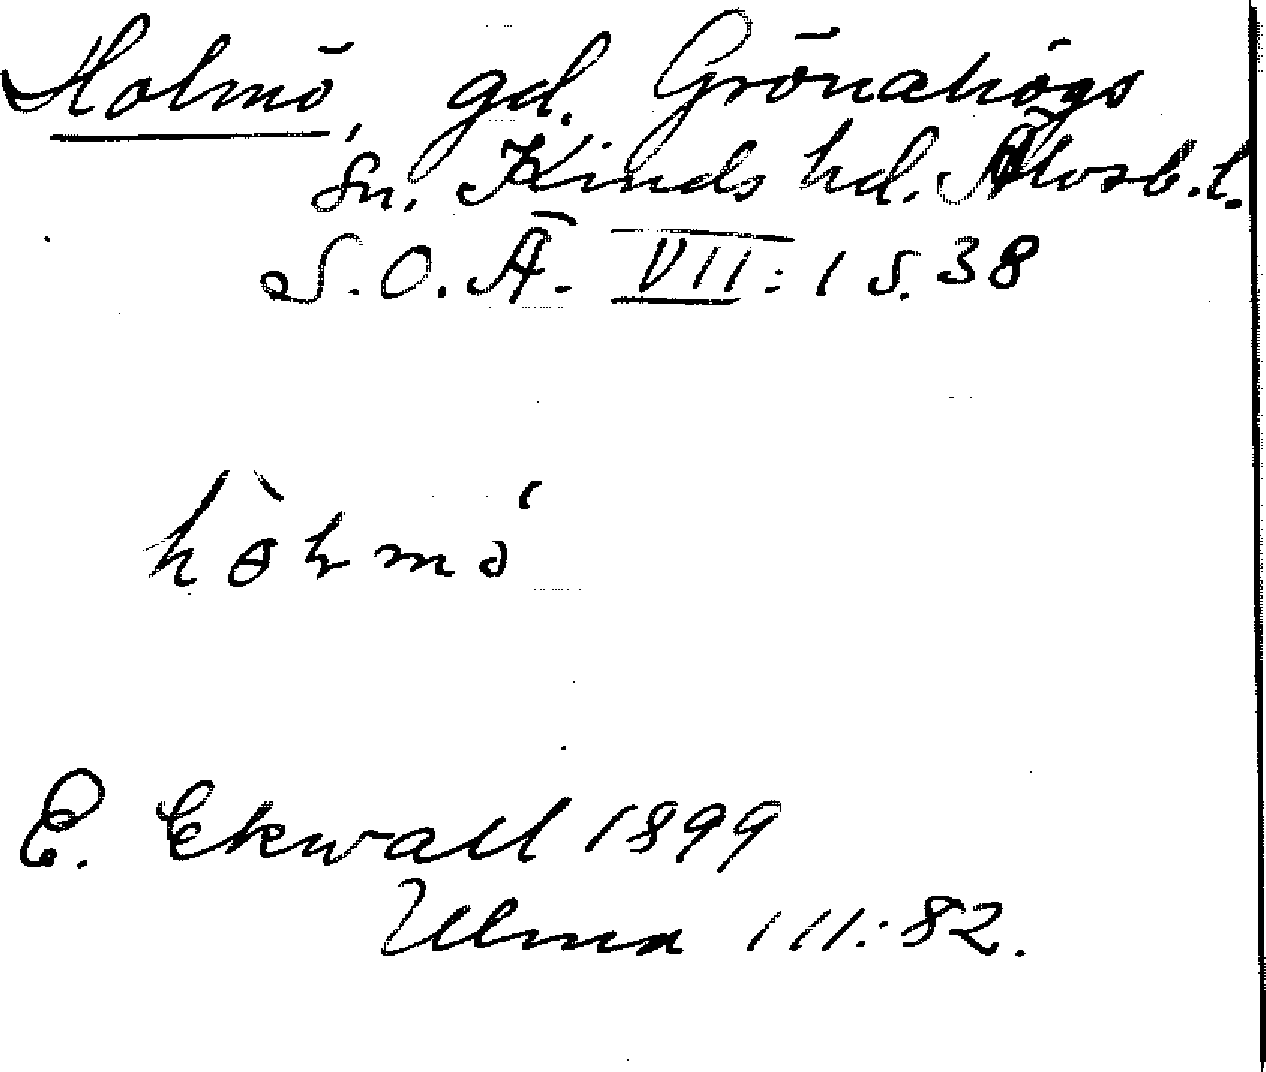 Holmö, gd. Grönahögs
sn. Kinds hd. Älvsb. l.
S. O. Ä. VII: 1 s. 38
E. Ekwall 1899
Ulma 111:82.